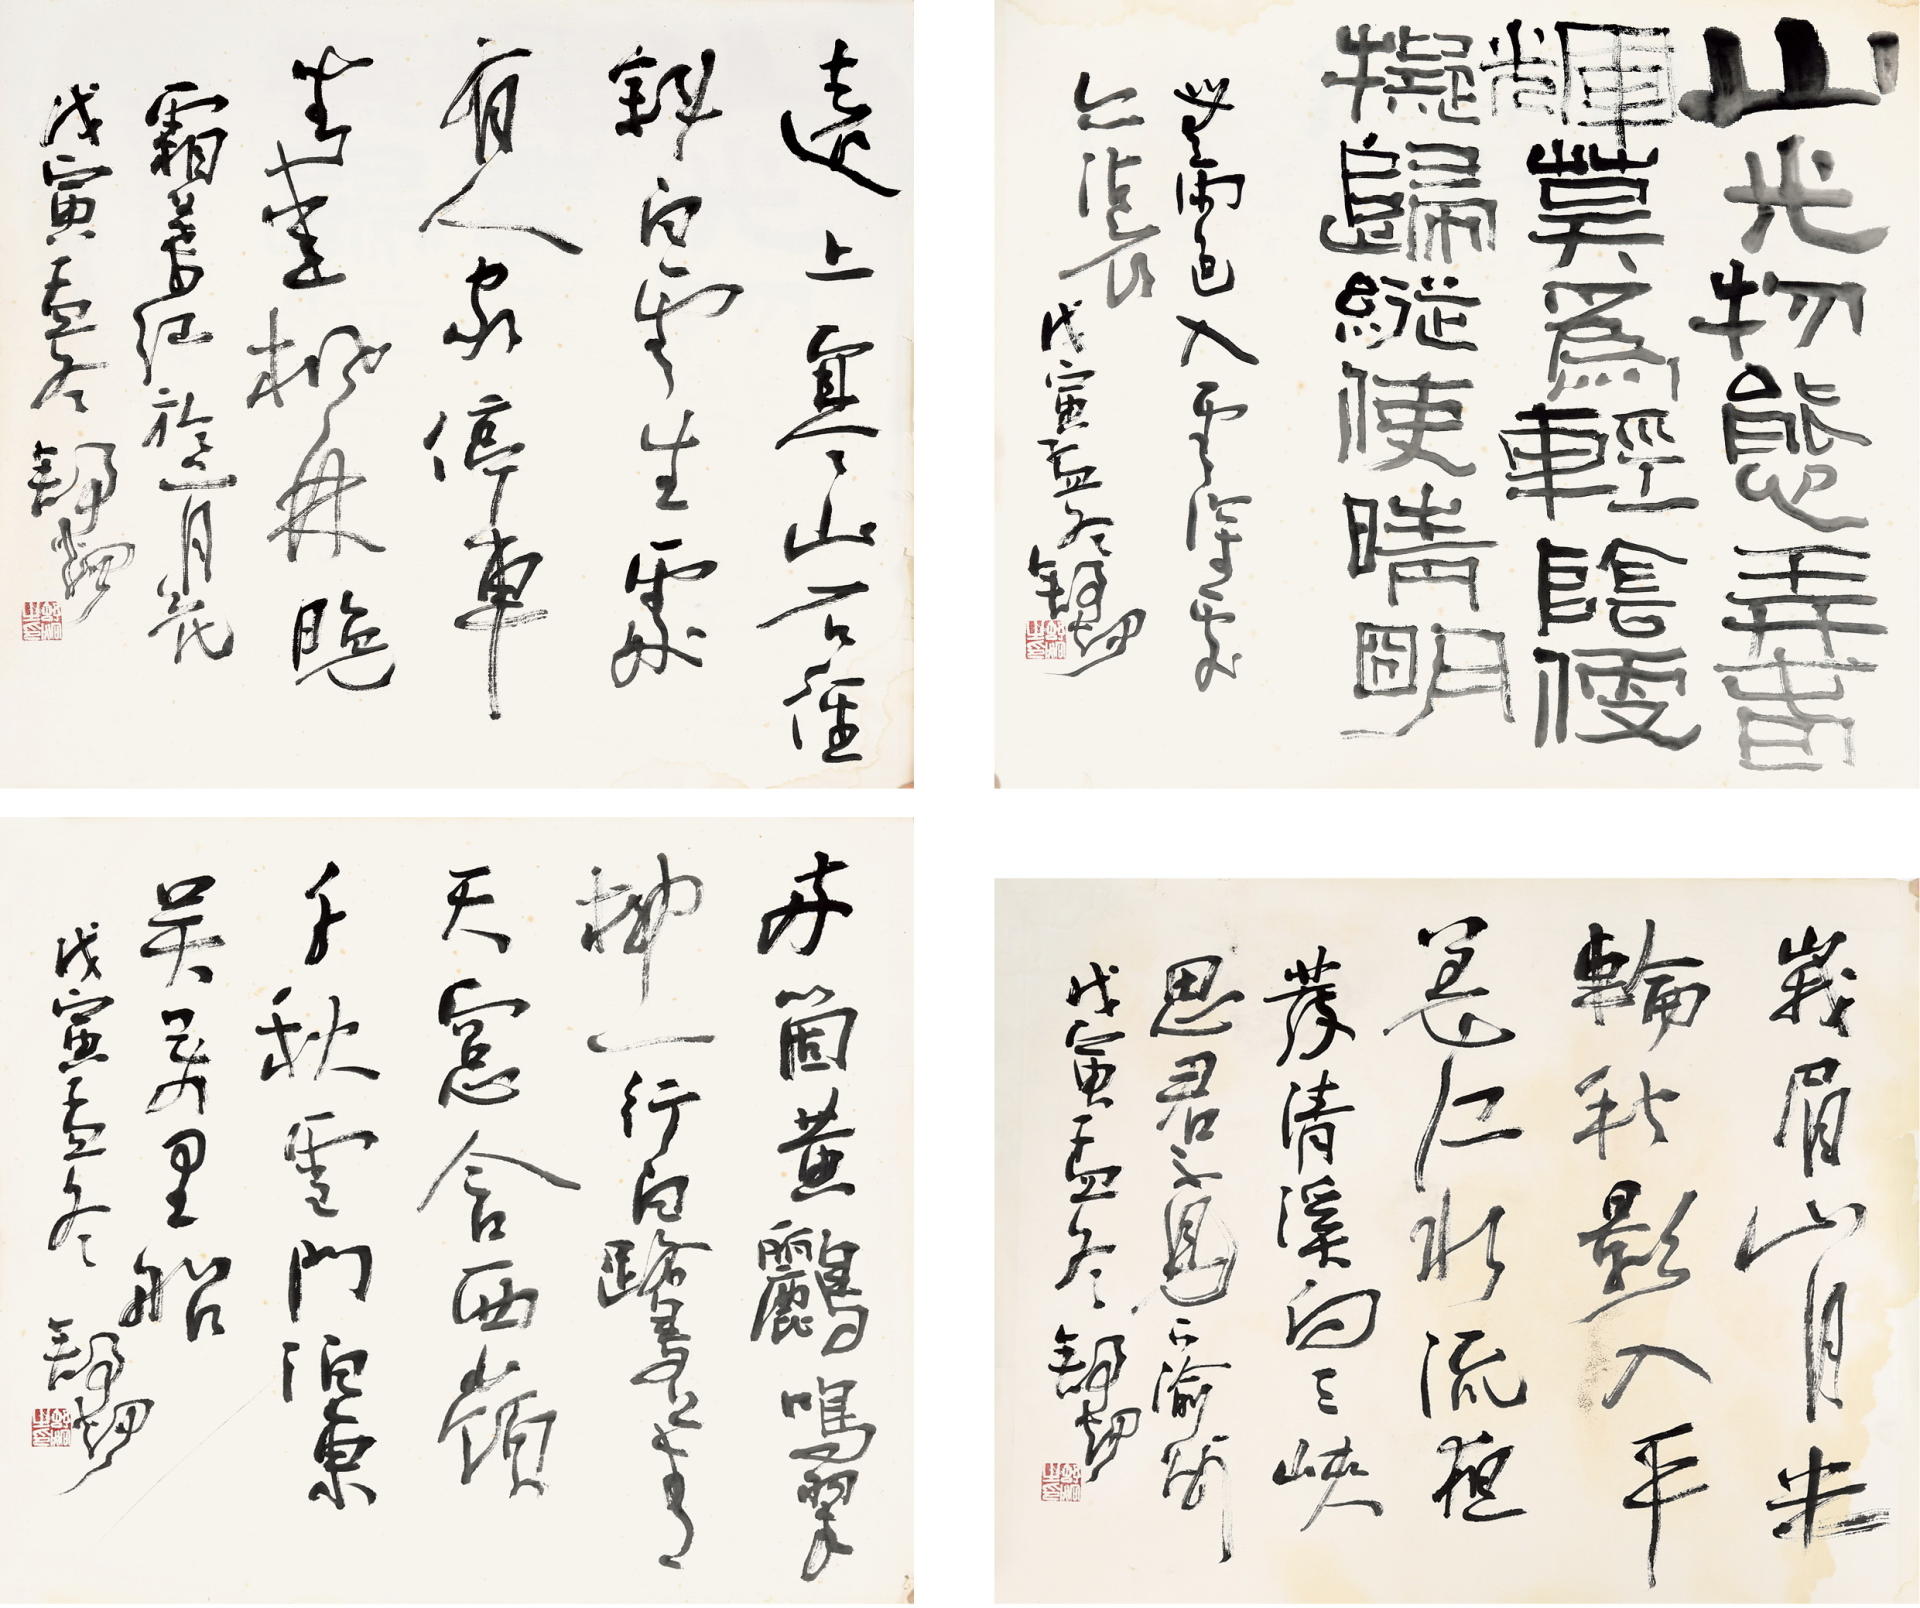 山光物態弄春
輝莫為輕陰便
擬歸縱使晴明
無雨色入雲深處
亦沾衣
戊寅孟冬
遠上寒山石徑
斜白雲生處
有人家停車
坐愛楓林晚
霜葉紅於二月花
戊寅孟冬
峨眉山月半
輪秋影入平
羌江水流夜
發清溪向三峽
思君不見下渝州
戊寅孟冬
兩箇黃鸝鳴翠
柳一行白鷺上青
天窻含西嶺
千秋雪門泊東
吳萬里船
戊寅孟冬